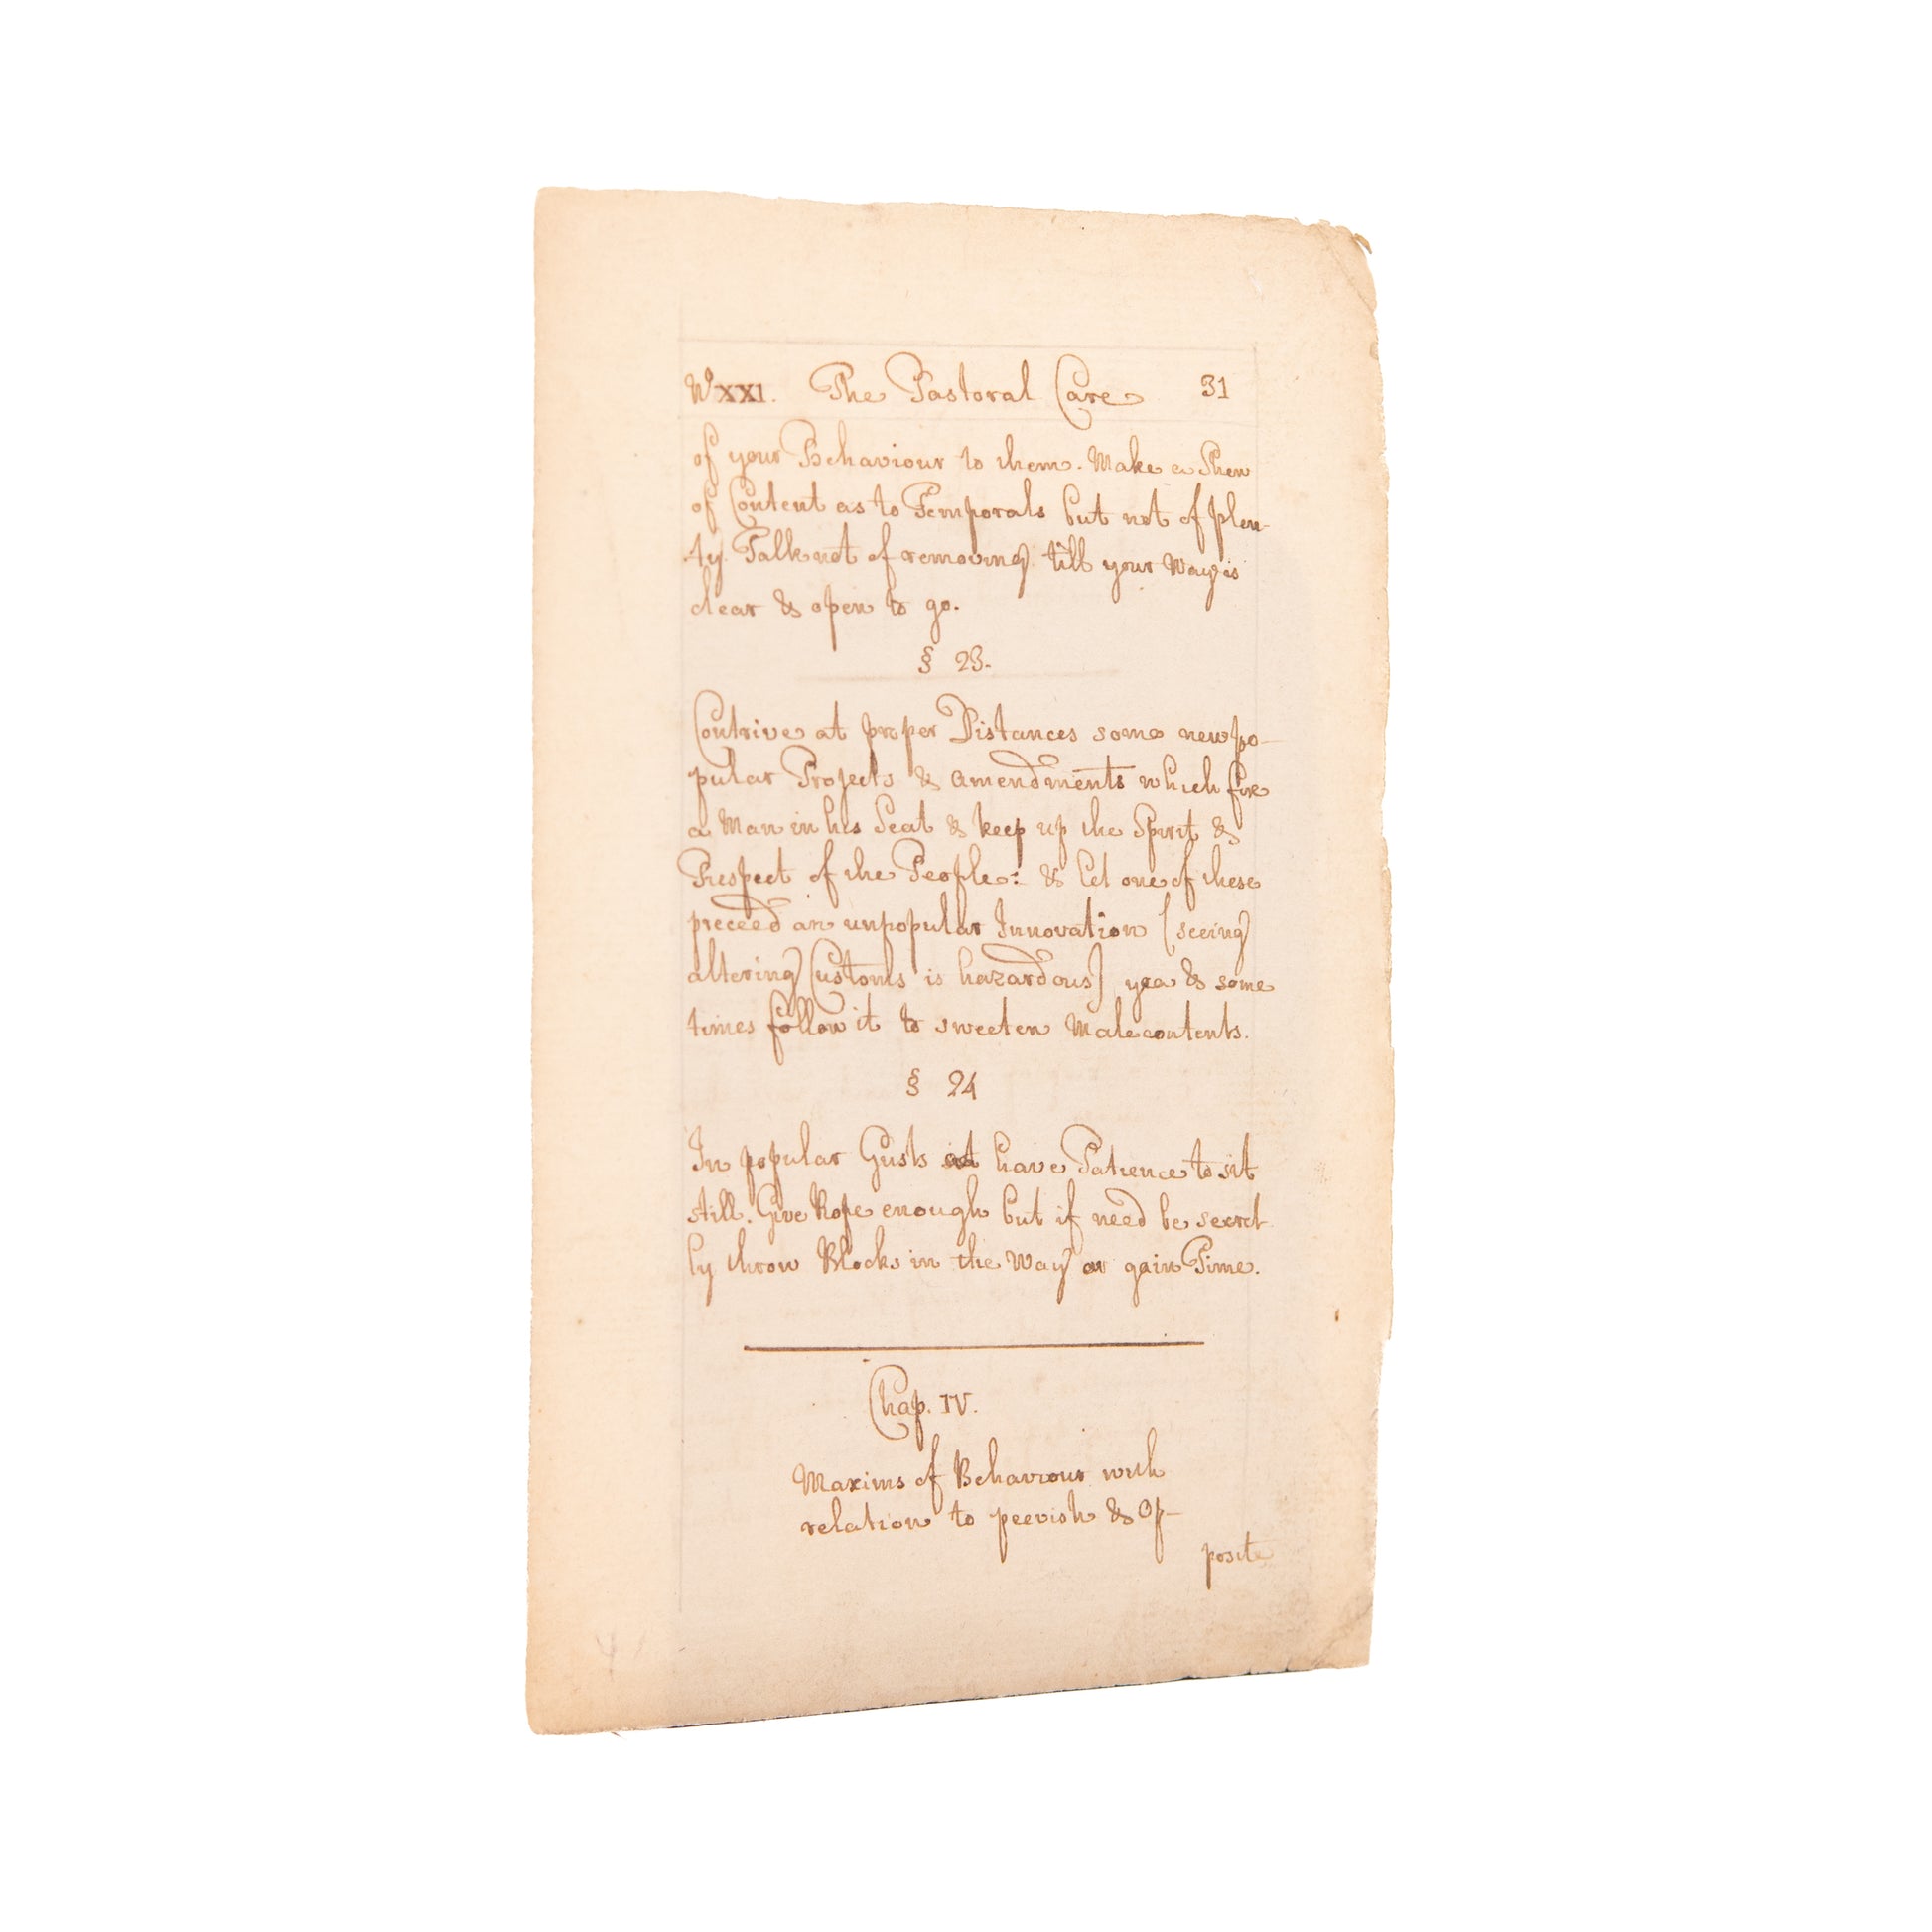 No XXI. The Pastoral Care 31
of your Behaviour to them. Make a Shew
of Content as to Temporals but not of plen-
ty. Talk not of removing till your Way is
clear & open to go.
§ 23.
Contrive at proper Distances some new po-
pular Projects & Amendments which fix
a Man in his Seat & keep up the Spirit &
Respect of the People: & let one of these
preceed an unpopular Innovation (seeing
altering Customs is hazardous) yea & some
times follow it to sweeten Malecontents.
§ 24
In popular Gusts have Patience to sit
still. Give Rope enough but if need be secret
ly throw Blocks in the Way or gain Time.
Chap. IV.
Maxims of Behaviour with
relation to peevish & Op-
posite